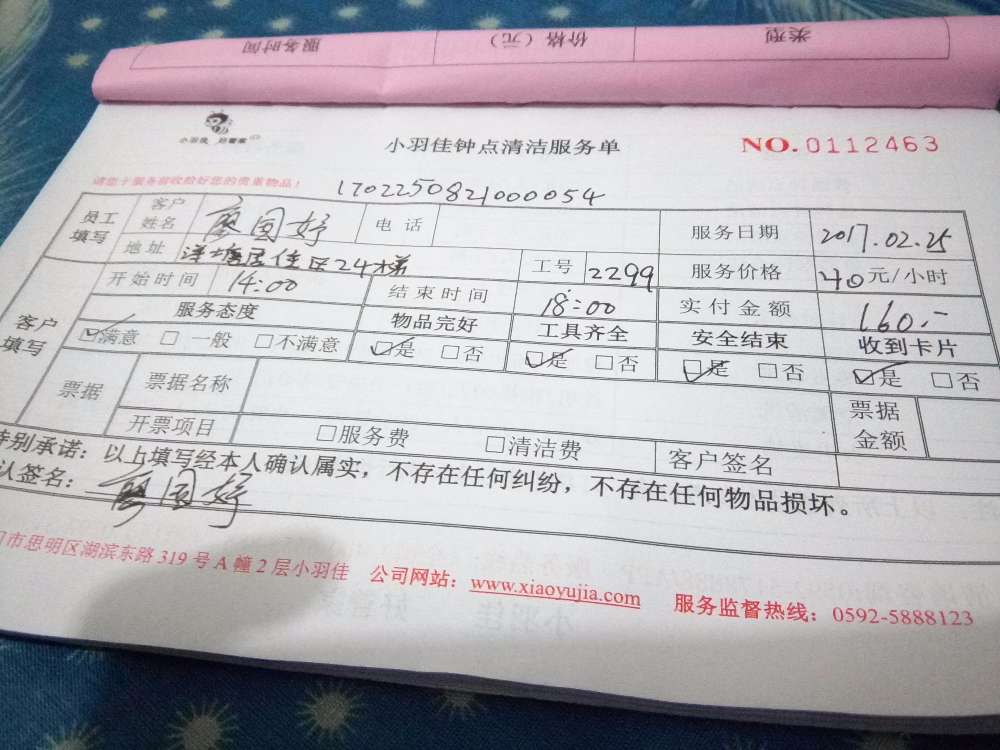 服务时间 价格（元） 类型
小羽佳 好管家
小羽佳钟点清洁服务单 NO.0112463
请您于服务前收拾好您的贵重物品！ 1702250821000054
员工填写 客户姓名 廖国妤 电话 服务日期 2017.02.25
地址 洋塘居住区24梯 工号 2299 服务价格 40元/小时
客户填写 开始时间 14:00 结束时间 18:00 实付金额 160.-
服务态度 物品完好 工具齐全 安全结束 收到卡片
☑满意 □一般 □不满意 ☑是 □否 ☑是 □否 ☑是 □否 ☑是 □否
票据 票据名称 票据金额
开票项目 □服务费 □清洁费 客户签名
特别承诺：以上填写经本人确认属实，不存在任何纠纷，不存在任何物品损坏。
认签名：廖国妤
门市思明区湖滨东路319号A幢2层小羽佳 公司网站：www.xiaoyujia.com 服务监督热线：0592-5888123